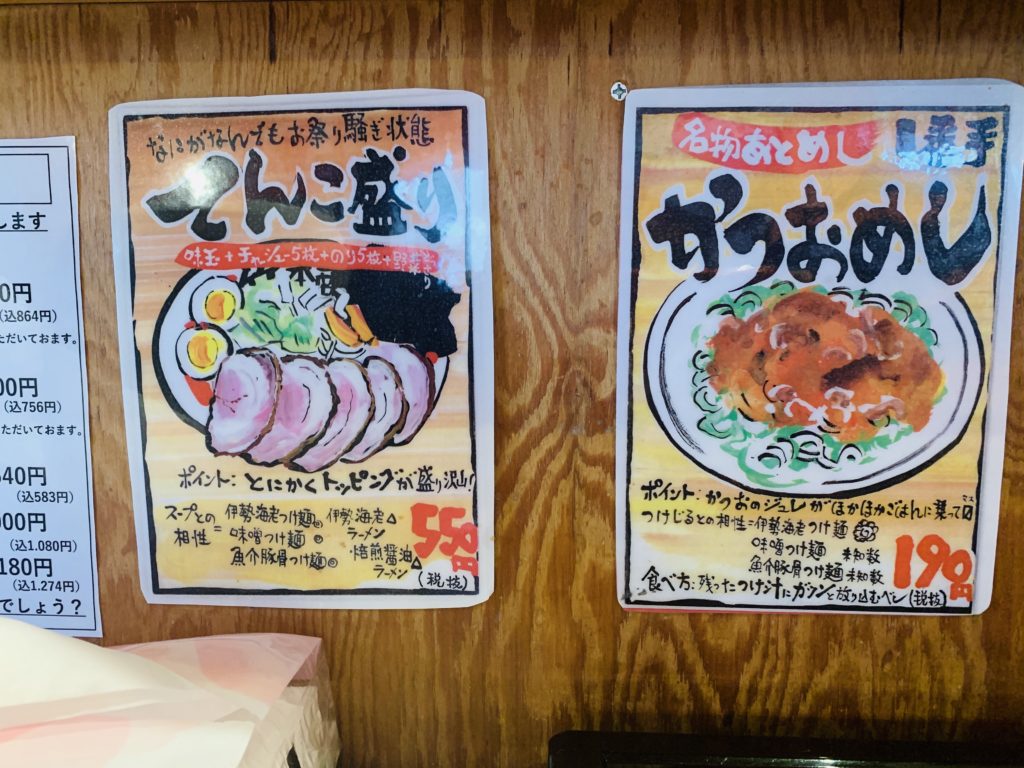 します
0円
(込864円)
ただいておます。
00円
(込756円)
ただいております。
540円
(込583円)
000円
(込1.080円)
180円
(込1.274円)
でしょう？
なにがなんでもお祭り騒ぎ状態
てんこ盛り
味玉+チャーシュー5枚+のり5枚+野菜
ポイント:とにかくトッピングが盛り沢山!
スープとの相性=
伊勢海老つけ麺◎
味噌つけ麺◎
魚介豚骨つけ麺◎
伊勢海老△
ラーメン
・焙煎醤油△
ラーメン
550円
(税抜)
名物おとめし
一番手
かつおめし
ポイント:かつおのジュレがほかほかごはんに乗って〼
つけじるとの相性=伊勢海老つけ麺
味噌つけ麺 未知数
魚介豚骨つけ麺 未知数
190円
食べ方:残ったつけ汁にガツンと放り込むベシ(税抜)